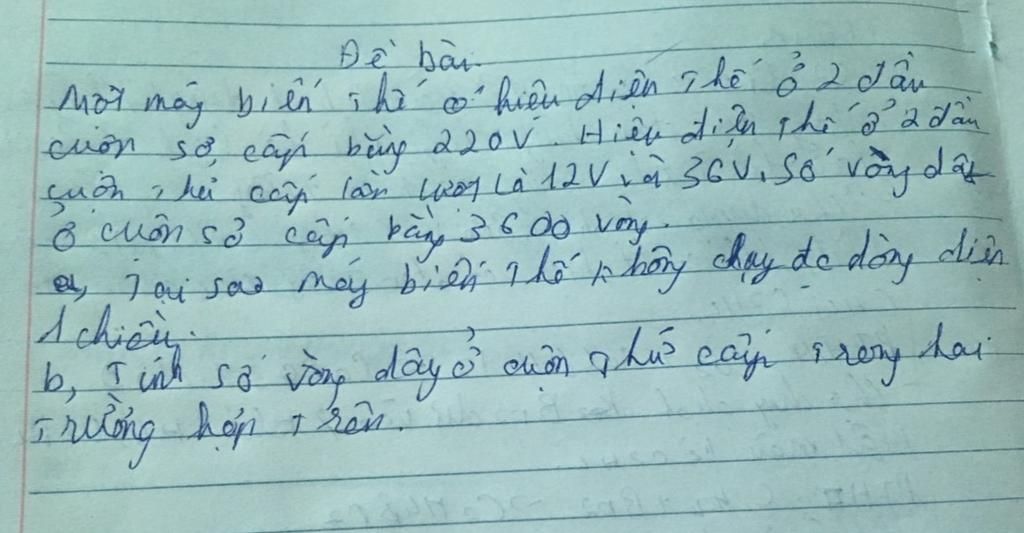 Đề bài
Một máy biến thế có hiệu điện thế ở 2 đầu
cuộn sơ cấp bằng 220V. Hiệu điện thế ở 2 đầu
cuộn thứ cấp lần lượt là 12V và 36V. Số vòng dây
ở cuộn sơ cấp bằng 3600 vòng.
a, Tại sao máy biến thế không chạy đc dòng điện
1 chiều.
b, Tính số vòng dây ở cuộn thứ cấp trong hai
trường hợp trên.